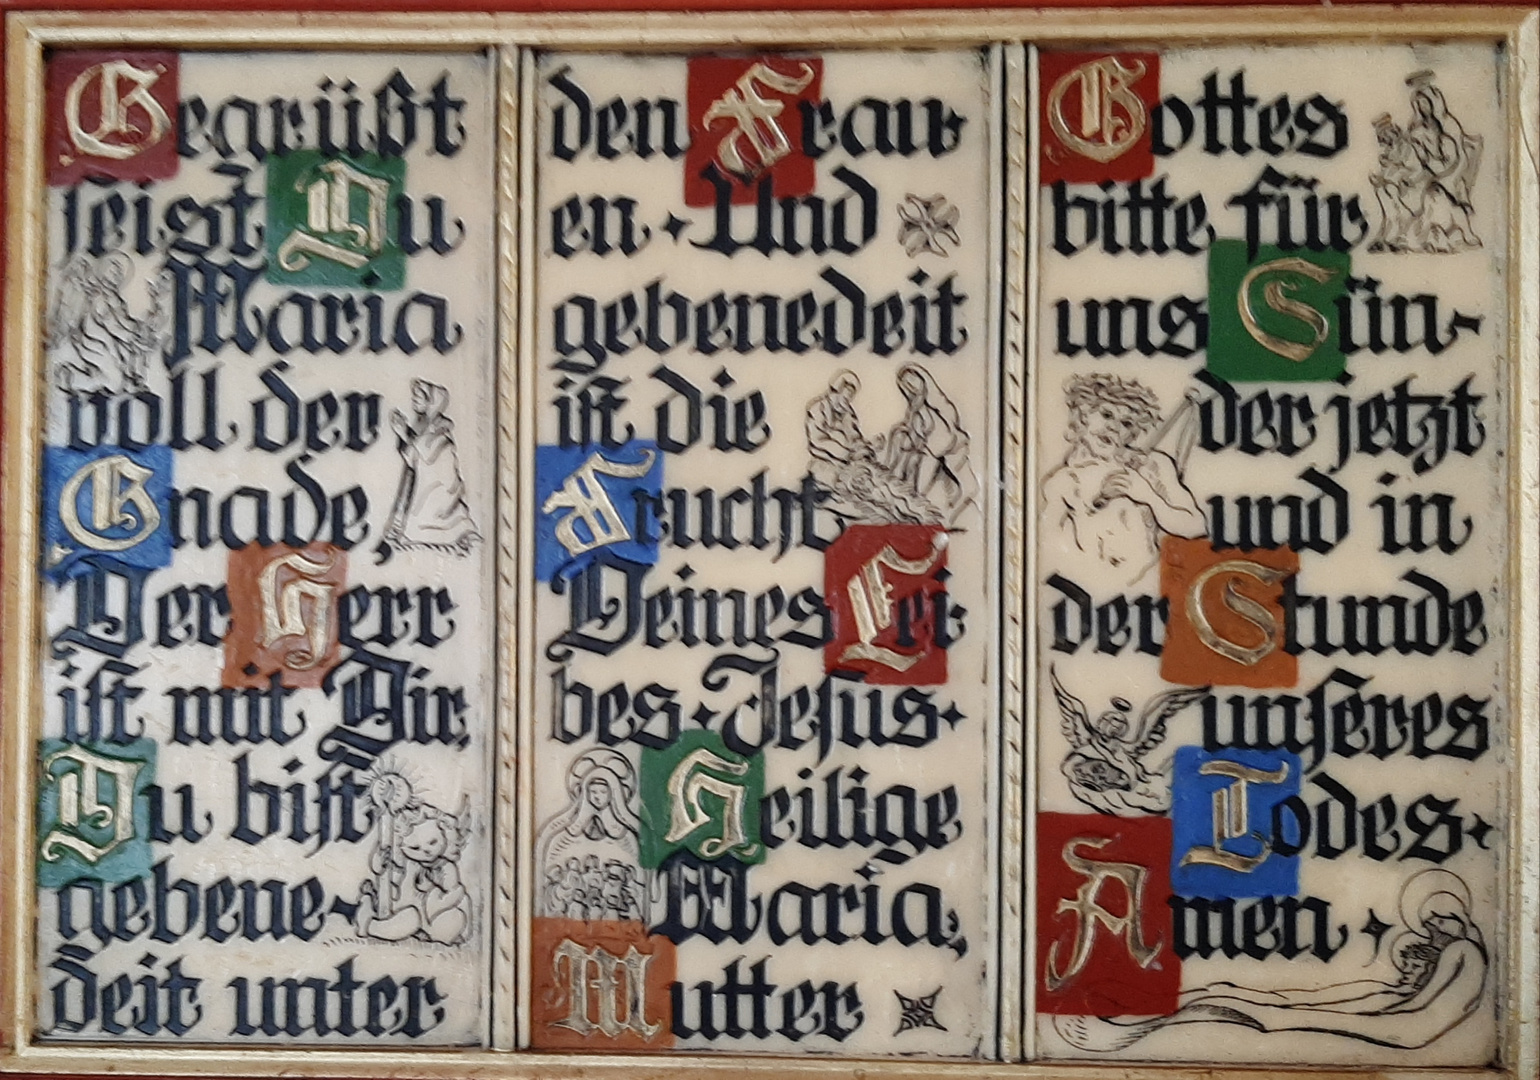 Gegrüßt
seist Du
Maria
voll der
Gnade,
Der Herr
ist mit Dir,
Du bist
gebene-
deit unter
den Frau-
en · Und
gebenedeit
ist die
Frucht
Deines Lei-
bes · Jesus ·
Heilige
Maria,
Mutter
Gottes
bitte für
uns Sün-
der jetzt
und in
der Stunde
unseres
Todes ·
Amen ·